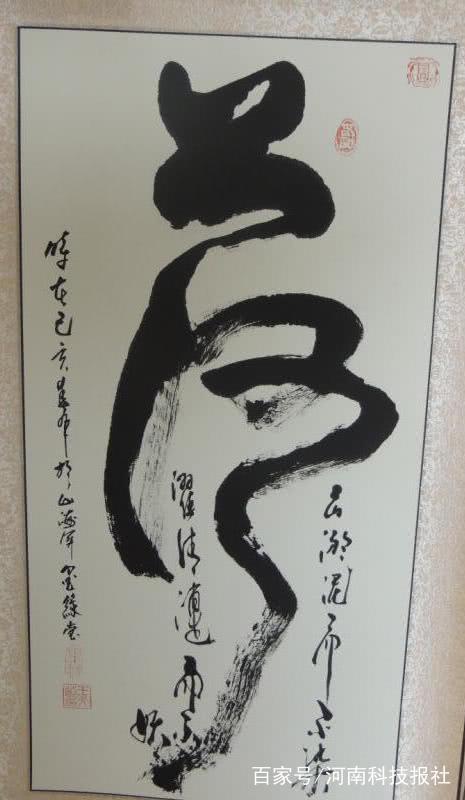 荷
出淤泥而不染
濯清漣而不妖
時在己亥於山海墨緣堂
百家号/河南科技报社